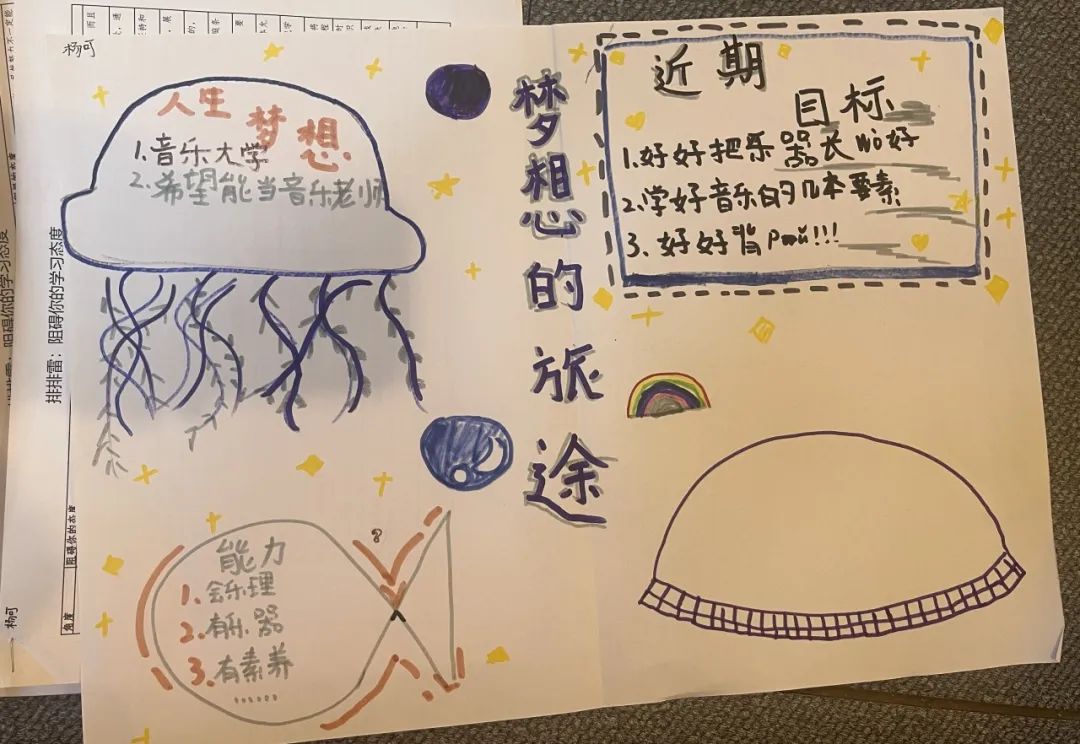 杨可
人生梦想
1.音乐大学
2.希望能当音乐老师
梦想的旅途
近期
目标
1.好好把乐器长wò好
2.学好音乐的几本要素
3.好好背
能力
1.会乐理
2.有乐器
3.有素养
……
?
排排雷：阻碍你的学习态度
阻碍你的态度
角度
杨可